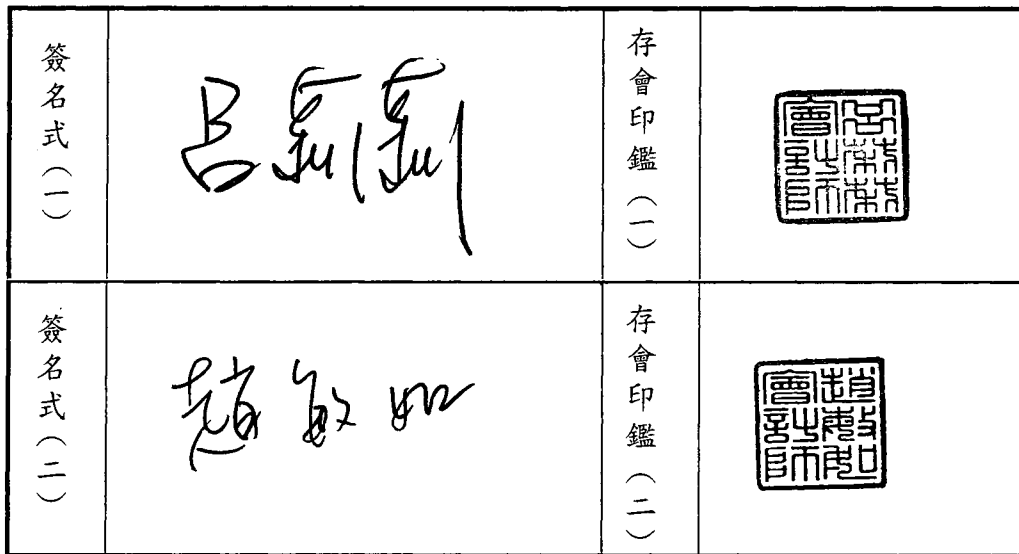 簽名式(一)
呂莉莉
存會印鑑(一)
呂莉莉
會計師
簽名式(二)
趙敏如
存會印鑑(二)
趙敏如
會計師